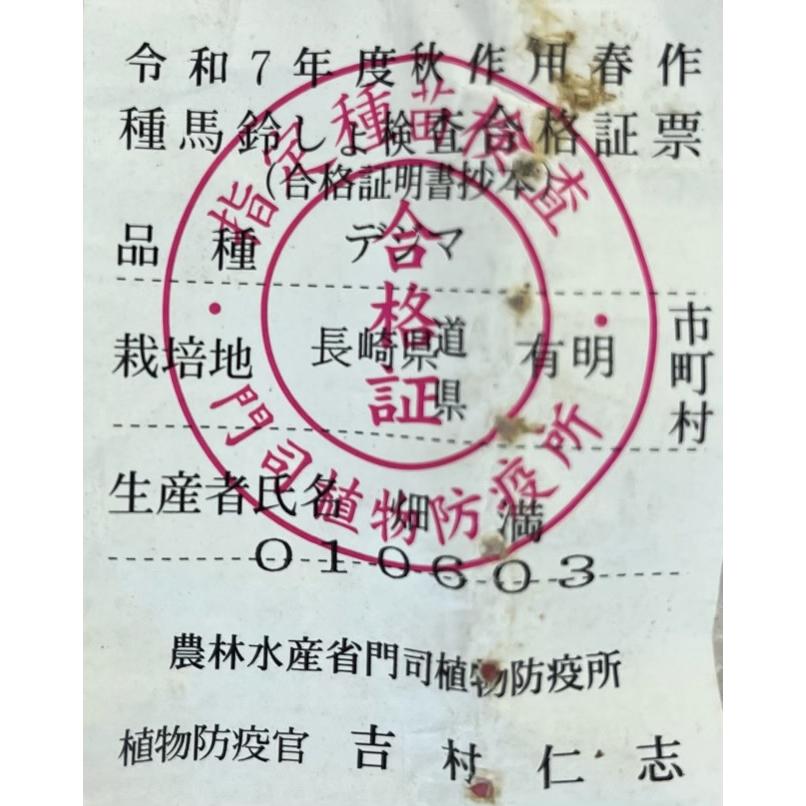 令和7年度秋作用春作
種馬鈴しょ検査合格証票
(合格証明書抄本)
品種 デジマ
栽培地 長崎県道県 有明 市町村
生産者氏名 畑 満
010603
農林水産省門司植物防疫所
植物防疫官 吉村仁志
指定種苗検査
合格証
門司植物防疫所